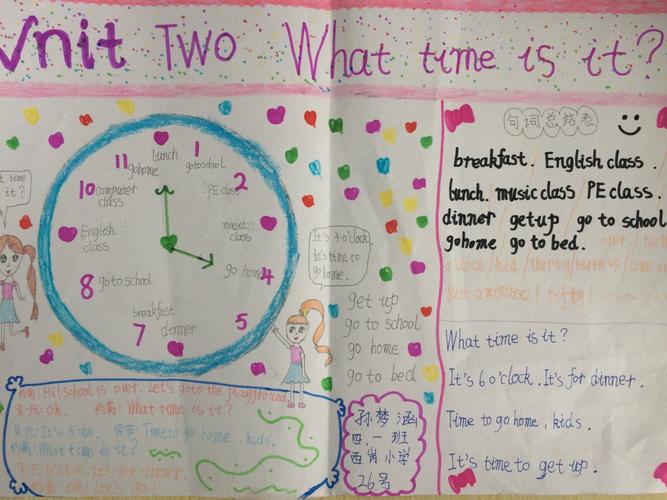 Unit Two What time is it?
t time
it?
11
lunch
1
go home
go to school
10
computer
class
PE class
2
English
class
music
class
8
go to school
go home
4
breakfast
7
dinner
5
It's 4 o'clock.
It's time to
go home.
get up
go to school
go home
go to bed
句词总结表
breakfast. English class.
lunch. music class PE class.
dinner get up go to school
go home go to bed.
over / now
o'clock / kid / thirty / hurry up / come on
just a minute / fifty /
What time is it?
It's 6 o'clock. It's for dinner.
Time to go home, kids.
It's time to get up.
约翰: Hi! School is over. Let's go to the playground.
Ok. 约翰: What time is it?
It's 5:00. Time to go home, kids.
约翰: What time is it?
It's 6:00. It's for dinner.
约翰: Oh! Let's go!
孙梦涵
四.一班
西岗小学
26号